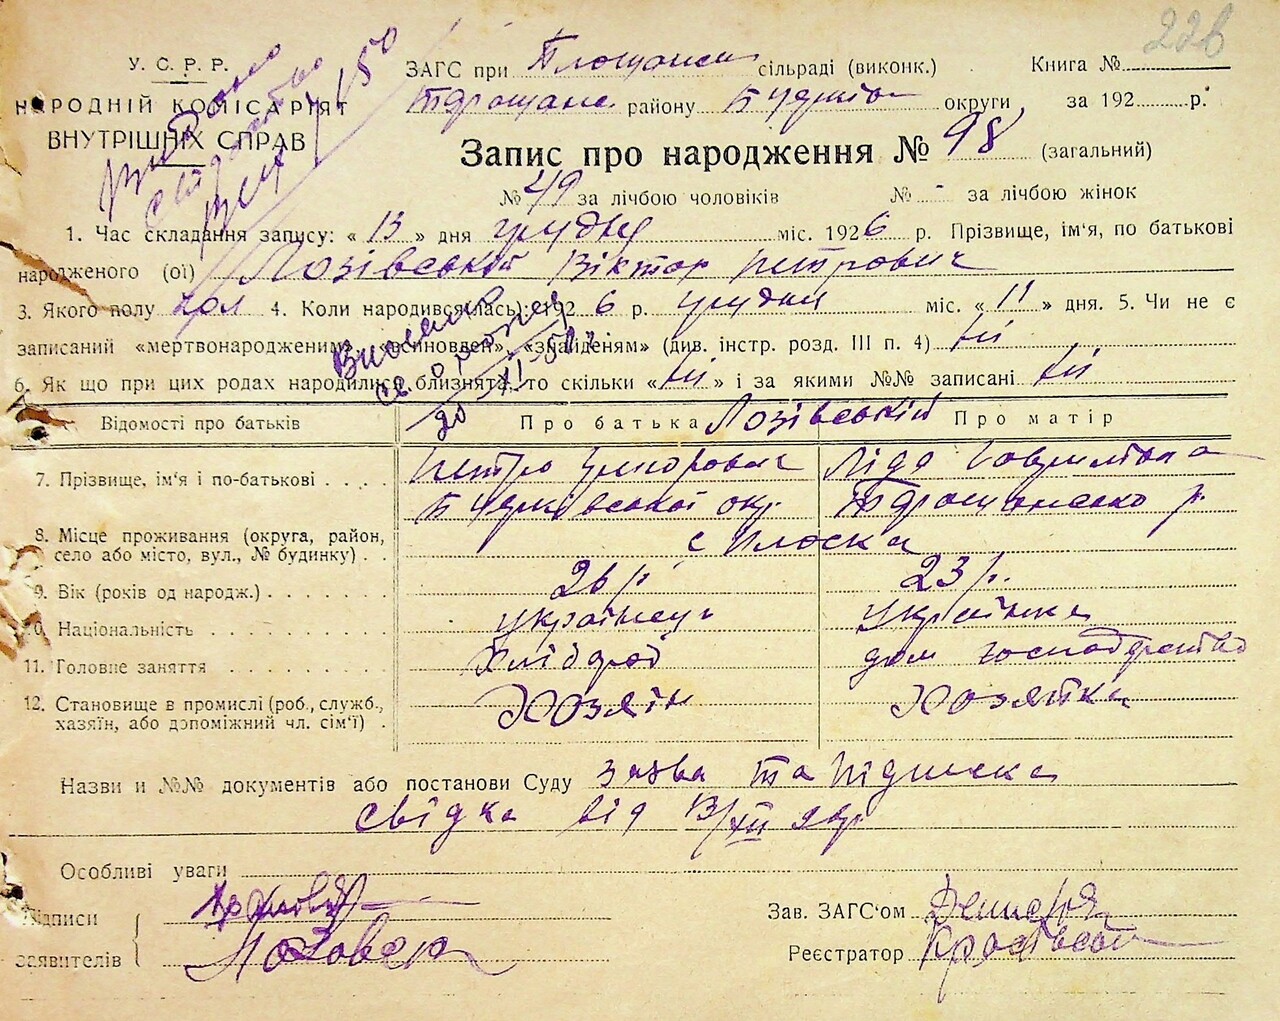 226
У. С. Р. Р.
НАРОДНІЙ КОМІСАРІЯТ
ВНУТРІШНІХ СПРАВ
ЗАГС при сільраді (виконк.) Книга №
району округи за 192 р.
Запис про народження № 98 (загальний)
№ 49 за лічбою чоловіків № - за лічбою жінок
1. Час складання запису: « 13 » дня грудня міс. 1926 р. Прізвище, ім'я, по батькові
народженого (ої) Лозівський Віктор Петрович
3. Якого полу чол 4. Коли народився(лась): 1926 р. грудня міс. « 11 » дня. 5. Чи не є
записаний «мертвонародженим», «осиновлен», «знайденям» (див. інстр. розд. III п. 4) ні
6. Як що при цих родах народились близнята, то скільки « ні » і за якими №№ записані ні
20 XI-50
Відомості про батьків Про батька Лозівський Про матір
7. Прізвище, ім'я і по-батькові Петро Григорович Ліда
8. Місце проживання (округа, район, село або місто, вул., № будинку) с Плоска
9. Вік (років од народж.) 26 р. 23 р.
10. Національність українець українка
11. Головне заняття Хлібороб дом господарство
12. Становище в промислі (роб., служб., хазяїн, або допоміжний чл. сім'ї) Хозяїн Хозяйка
Назви и №№ документів або постанови Суду Заява та підписка
свідка від 13/XII
Особливі уваги
Підписи
заявителів
Зав. ЗАГС'ом
Реєстратор